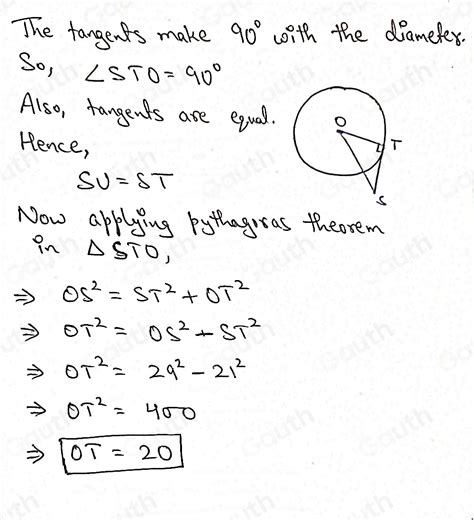 The tangents make 90° with the diameter.
So, ∠STO = 90°
Also, tangents are equal.
Hence,
SU = ST
O
T
S
Now applying pythagoras theorem
in △STO,
⇒ OS² = ST² + OT²
⇒ OT² = OS² - ST²
⇒ OT² = 29² - 21²
⇒ OT² = 400
⇒ OT = 20
Gauth